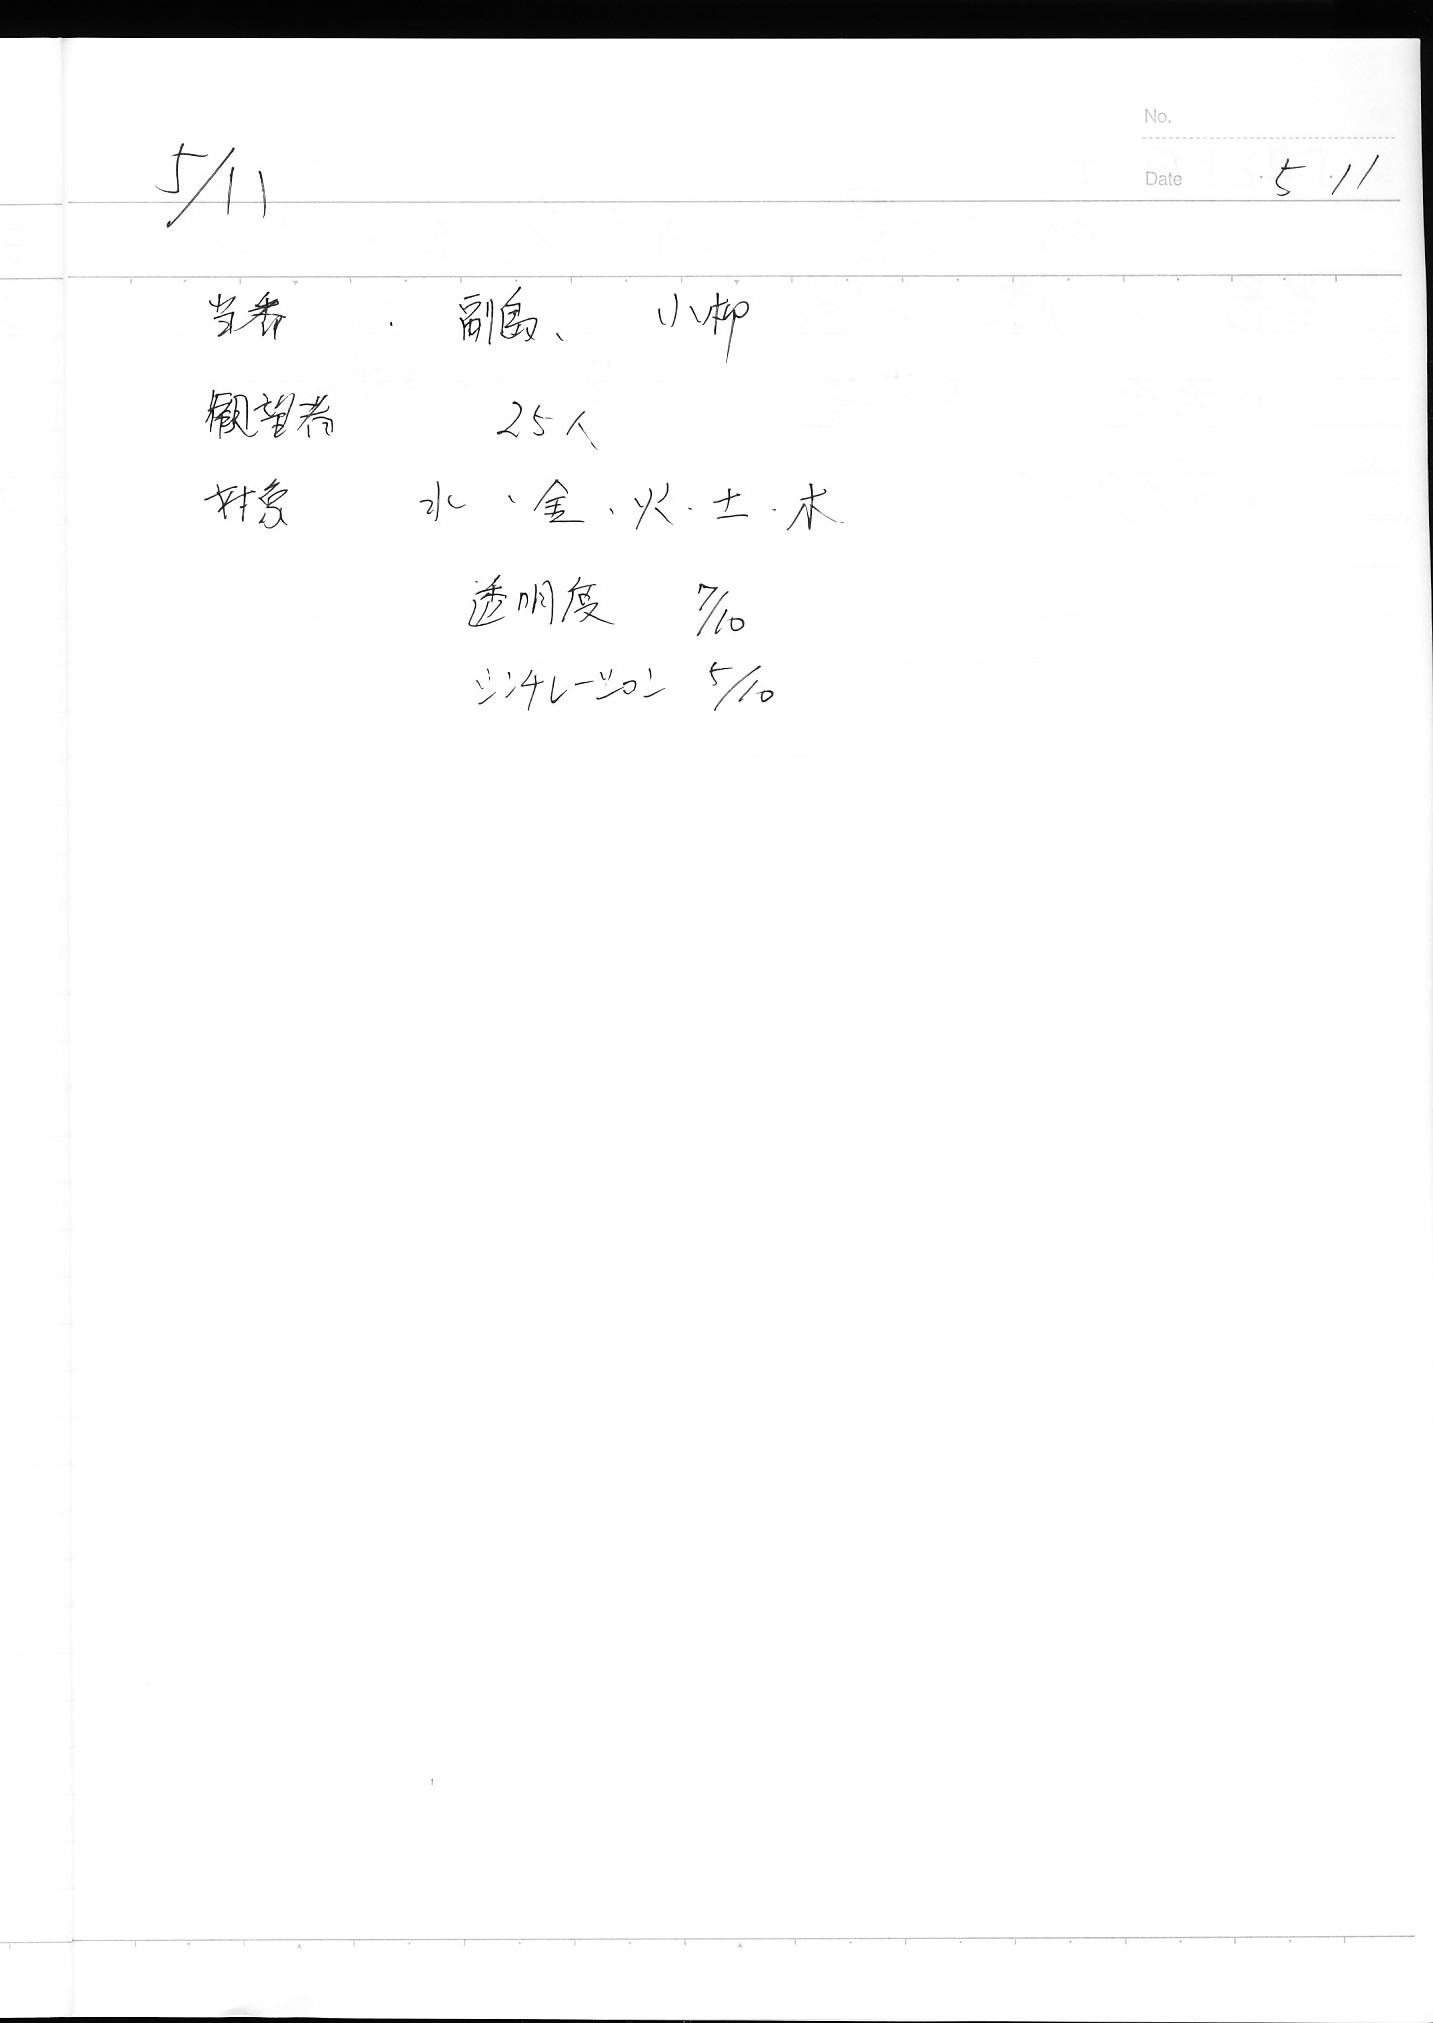 No.
5/11
Date ・5・11
当番 ・ 副島、 小柳
観望者 25人
対象 水、金、火・土・木
透明度 7/10
シンチレーション 5/10